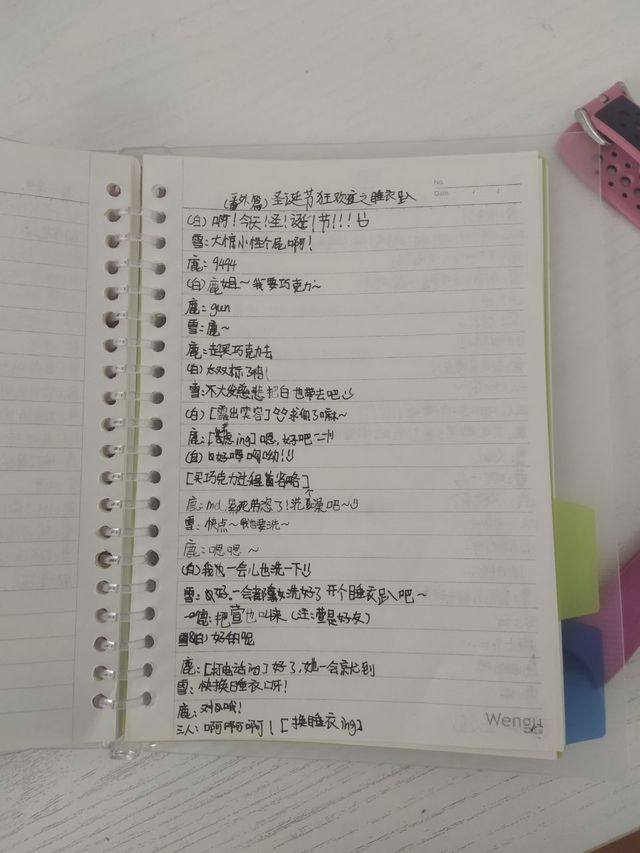 No.
Date / /
(番外篇) 圣诞节狂欢夜之睡衣趴
(白) 啊!今天!圣!诞!节!!!
雪:大惊小怪个屁啊!
鹿:9494
(白)鹿姐~我要巧克力~
鹿:gun
雪:鹿~
鹿:走买巧克力去
(白)太双标了楷!
雪:不大发慈悲把白也带去吧
(白)[露出笑容] 求你了嘛~
鹿:[思ing] 嗯,好吧
(白)好啊呦!!
[买巧克力过程省略]
鹿:md,累死带恣了!洗澡吧~
雪:快点~我也要洗~
鹿:嗯嗯~
(白)我也一会儿也洗一下
雪:好.一会都洗好了开个睡衣趴吧~
鹿:把萱也叫来 (注:萱是好友)
雪&白)好的呢
鹿:[打电话ing] 好了,她一会就到
雪:快换睡衣呀!
鹿:对哦!
三人:啊啊啊啊! [换睡衣ing]
Wengu